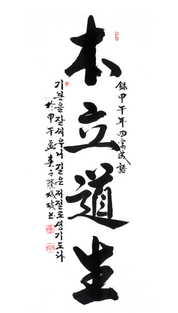 本立道生
錄甲午年四字成語
기본을 잘 세우니 길은 저절로 생기도다
於甲午盛夏